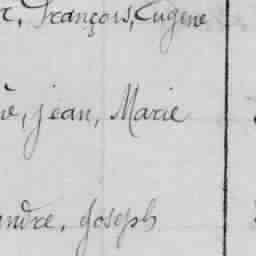 r, François, Eugene
nè, jean, Marie
andre, Joseph